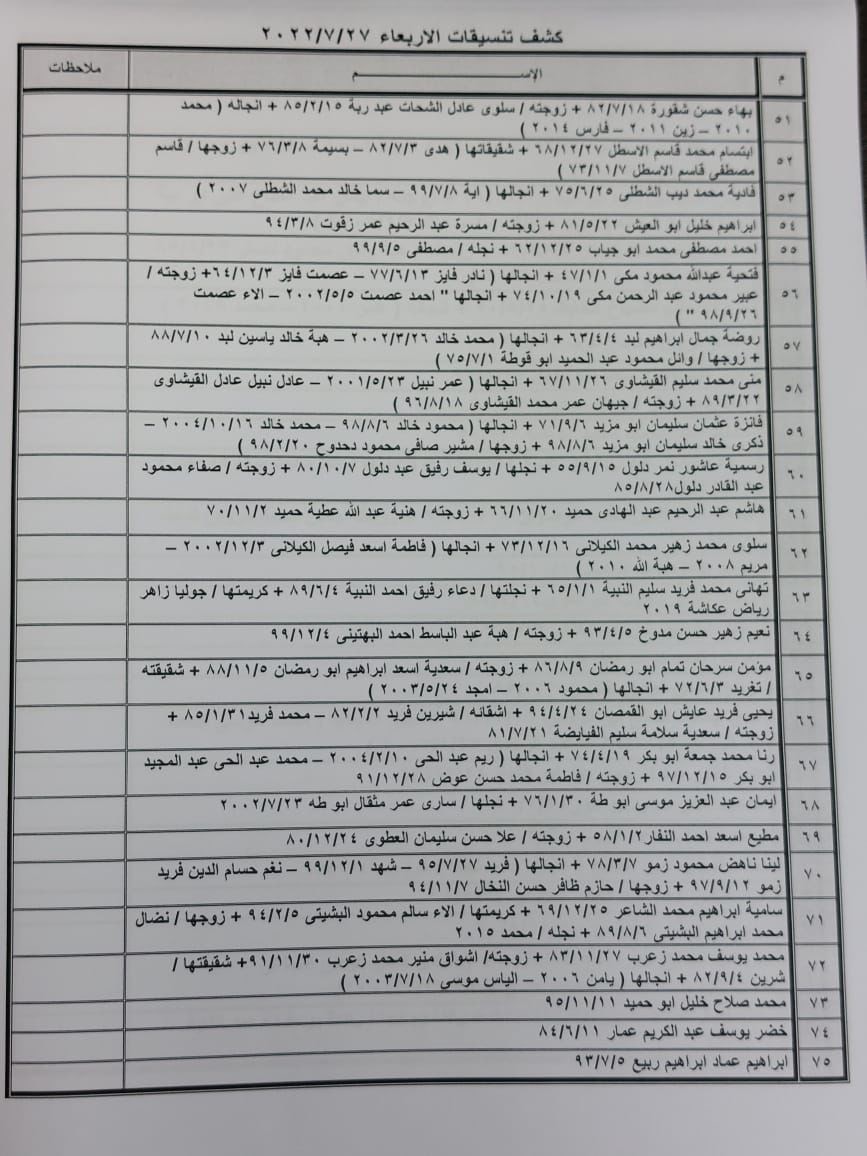 كشف تنسيقات الاربعاء ٢٠٢٢/٧/٢٧
م الإســـــم ملاحظات
٥١ بهاء حسن شقورة ٨٢/٧/١٨ + زوجته / سلوى عادل الشحات عبد ربة ٨٥/٢/١٥ + انجاله ( محمد
٢٠١٠ – زين ٢٠١١ – فارس ٢٠١٤ )
٥٢ ابتسام محمد قاسم الاسطل ٦٨/١٢/٢٧ + شقيقاتها ( هدى ٨٢/٧/٣ – بسيمة ٧٦/٣/٨ + زوجها / قاسم
مصطفى قاسم الاسطل ٧٣/١١/٧ )
٥٣ فادية محمد ديب الشطلى ٧٥/٦/٢٥ + انجالها ( اية ٩٩/٧/٨ – سما خالد محمد الشطلى ٢٠٠٧ )
٥٤ ابراهيم خليل ابو العيش ٨١/٥/٢٢ + زوجته / مسرة عبد الرحيم عمر زقوت ٩٤/٣/٨
٥٥ احمد مصطفى محمد ابو جياب ٦٢/١٢/٢٥ + نجله / مصطفى ٩٩/٩/٥
٥٦ فتحية عبدالله محمود مكى ٤٧/١/١ + انجالها ( نادر فايز ٧٧/٦/١٣ – عصمت فايز ٦٤/١٢/٣+ زوجته /
عبير محمود عبد الرحمن مكى ٧٤/١٠/١٩ + انجالها " احمد عصمت ٢٠٠٢/٥/٥ – الاء عصمت
٩٨/٩/٢٦ " )
٥٧ روضة جمال ابراهيم لبد ٦٣/٤/٤ + انجالها ( محمد خالد ٢٠٠٢/٣/٢٦ – هبة خالد ياسين لبد ٨٨/٧/١٠
+ زوجها / وائل محمود عبد الحميد ابو قوطة ٧٥/٧/١ )
٥٨ منى محمد سليم القيشاوى ٦٧/١١/٢٦ + انجالها ( عمر نبيل ٢٠٠١/٥/٢٣ – عادل نبيل عادل القيشاوى
٨٩/٣/٢٢ + زوجته / جيهان عمر محمد القيشاوى ٩٦/٨/١٨ )
٥٩ فائزة عثمان سليمان ابو مزيد ٧١/٩/٦ + انجالها ( محمود خالد ٩٨/٨/٦ – محمد خالد ٢٠٠٤/١٠/١٦ –
ذكرى خالد سليمان ابو مزيد ٩٨/٨/٦ + زوجها / مشير صافى محمود دحدوح ٩٨/٢/٢٠ )
٦٠ رسمية عاشور نمر دلول ٥٥/٩/١٥ + نجلها / يوسف رفيق عبد دلول ٨٠/١٠/٧ + زوجته / صفاء محمود
عبد القادر دلول٨٥/٨/٢٨
٦١ هاشم عبد الرحيم عبد الهادى حميد ٦٦/١١/٢٠ + زوجته / هنية عبد الله عطية حميد ٧٠/١١/٢
٦٢ سلوى محمد زهير محمد الكيلانى ٧٣/١٢/١٦ + انجالها ( فاطمة اسعد فيصل الكيلانى ٢٠٠٢/١٢/٣ –
مريم ٢٠٠٨ – هبة الله ٢٠١٠ )
٦٣ تهانى محمد فريد سليم النبية ٦٥/١/١ + نجلتها / دعاء رفيق احمد النبية ٨٩/٦/٤ + كريمتها / جوليا زاهر
رياض عكاشة ٢٠١٩
٦٤ نعيم زهير حسن مدوخ ٩٣/٤/٥ + زوجته / هبة عبد الباسط احمد البهتينى ٩٩/١٢/٤
٦٥ مؤمن سرحان تمام ابو رمضان ٨٦/٨/٩ + زوجته / سعدية اسعد ابراهيم ابو رمضان ٨٨/١١/٥ + شقيقته
/ تغريد ٧٢/٦/٣ + انجالها ( محمود ٢٠٠٦ – امجد ٢٠٠٣/٥/٢٤ )
٦٦ يحيى فريد عايش ابو القمصان ٩٤/٤/٢٤ + اشقائه / شيرين فريد ٨٢/٢/٢ – محمد فريد٨٥/١/٣١ +
زوجته / سعدية سلامة سليم الفيايضة ٨١/٧/٢١
٦٧ رنا محمد جمعة ابو بكر ٧٤/٤/١٩ + انجالها ( ريم عبد الحى ٢٠٠٤/٢/١٠ – محمد عبد الحى عبد المجيد
ابو بكر ٩٧/١٢/١٥ + زوجته / فاطمة محمد حسن عوض ٩١/١٢/٢٨
٦٨ ايمان عبد العزيز موسى ابو طة ٧٦/١/٣٠ + نجلها / سارى عمر مثقال ابو طه ٢٠٠٢/٧/٢٣
٦٩ مطيع اسعد احمد النفار ٥٨/١/٢ + زوجته / علا حسن سليمان العطوى ٨٠/١٢/٢٤
٧٠ لينا ناهض محمود زمو ٧٨/٣/٧ + انجالها ( فريد ٩٥/٧/٢٧ – شهد ٩٩/١٢/١ – نغم حسام الدين فريد
زمو ٩٧/٩/١٢ + زوجها / حازم ظافر حسن النخال ٩٤/١١/٧
٧١ سامية ابراهيم محمد الشاعر ٦٩/١٢/٢٥ + كريمتها / الاء سالم محمود البشيتى ٩٤/٢/٥ + زوجها / نضال
محمد ابراهيم البشيتى ٨٩/٨/٦ + نجله / محمد ٢٠١٥
٧٢ محمد يوسف محمد زعرب ٨٣/١١/٢٧ + زوجته/ اشواق منير محمد زعرب ٩١/١١/٣٠+ شقيقتها /
شرين ٨٢/٩/٤ + انجالها ( يامن ٢٠٠٦ – الياس موسى ٢٠٠٣/٧/١٨ )
٧٣ محمد صلاح خليل ابو حميد ٩٥/١١/١١
٧٤ خضر يوسف عبد الكريم عمار ٨٤/٦/١١
٧٥ ابراهيم عماد ابراهيم ربيع ٩٣/٧/٥